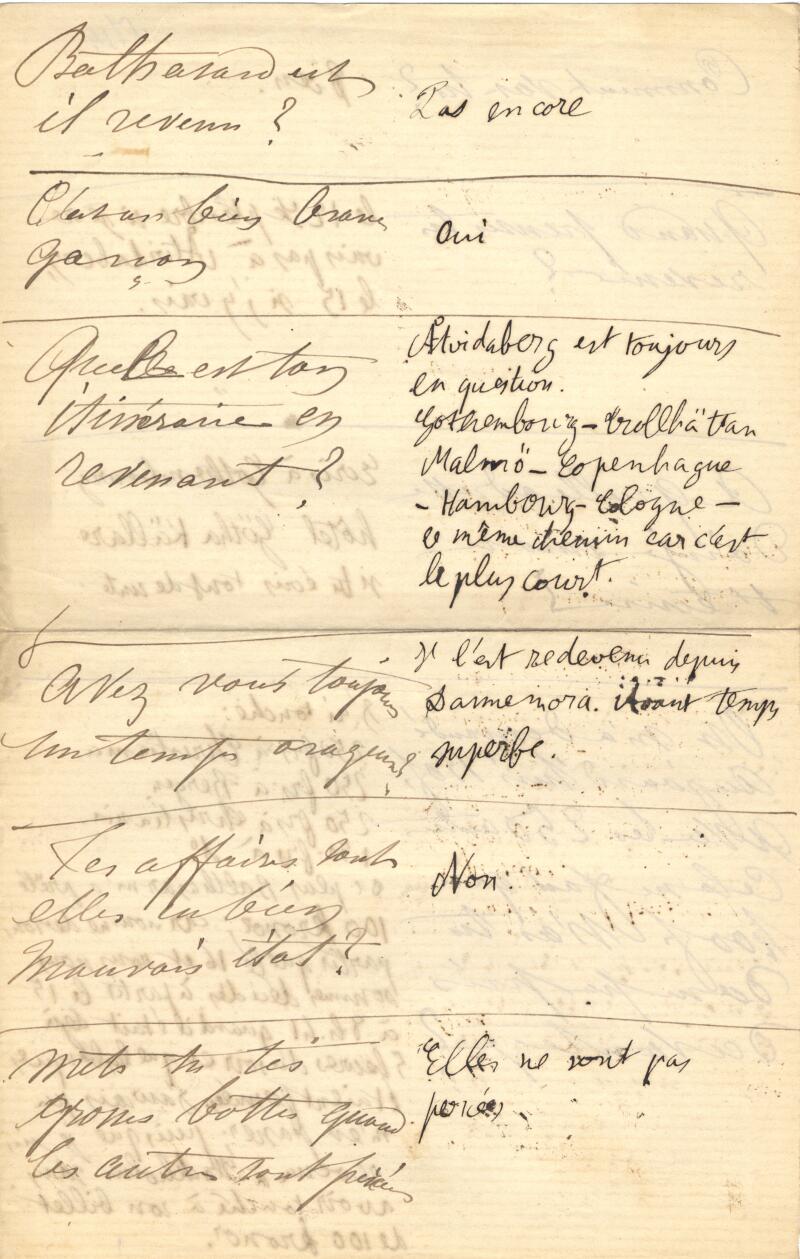 Balthasard est
il revenu ?
Pas encore
C'est un bien brave
garçon
oui
Quelle est ton
itinéraire en
revenant ?
Atvidaberg est toujours
en question.
Gothembourg - Trollhättan
Malmö - Copenhague
- Hambourg - Cologne -
le même chemin car c'est
le plus court.
Avez vous toujours
un temps orageux ?
Il l'est redevenu depuis
Dannemora. avant temps
superbe.
Tes affaires sont
elles en bien
mauvais état ?
Non.
Mets tu tes
grosses bottes quand
les autres sont percées
Elles ne sont pas
percées.